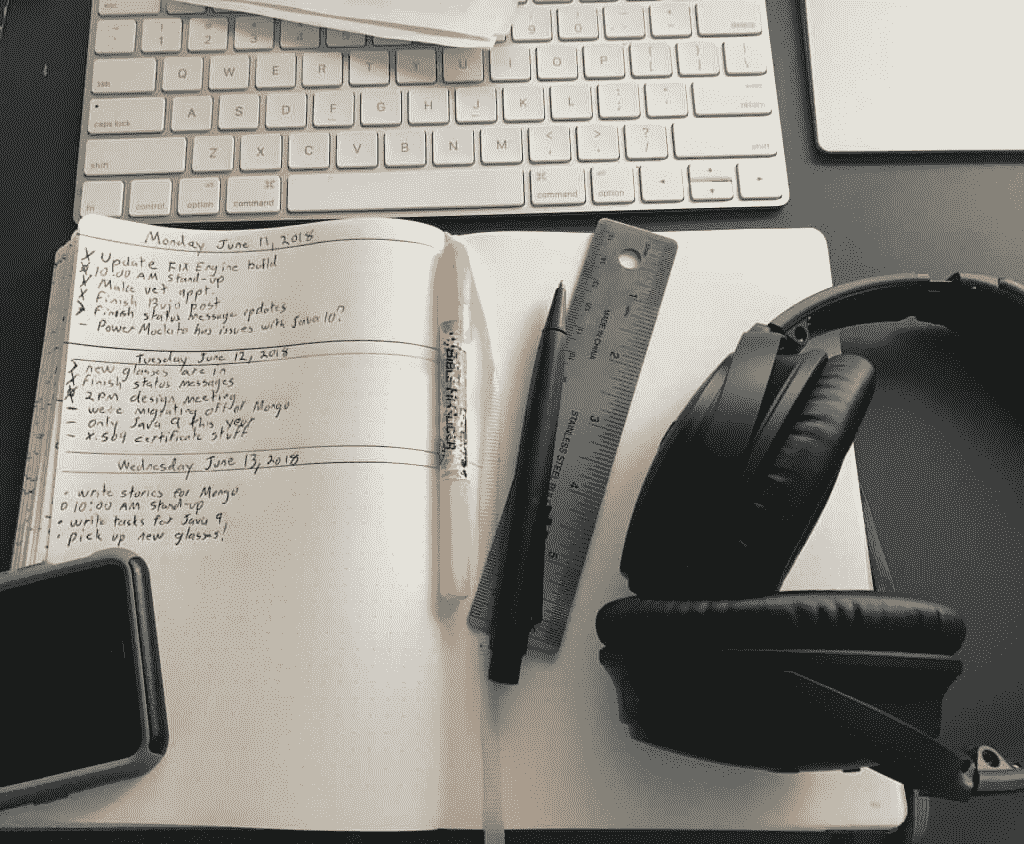 esc
delete
~ 1 2 3 4 9 0 - +
tab Q W E R T Y U I O P { } |
[ ] \
caps lock A S D F G H J K L : " enter
; ' return
shift Z X C V B N M < > ? shift
, . /
fn control alt option ⌘ command ⌘ command alt option
Monday June 11, 2018
X Update FIX Engine build
X 10:00 AM stand-up
X Make vet appt.
X Finish Bujo post
> Finish status message updates
- PowerMockito has issues with Java 10?
Tuesday June 12, 2018
> new glasses are in
X Finish status messages
X 2PM design meeting
- we're migrating off of Mongo
- only Java 9 this year
- X.509 certificate stuff
Wednesday June 13, 2018
• write stories for Mongo
O 10:00 AM stand-up
• write tasks for Java 9
• pick up new glasses!
Bible Hi-Glider
1 2 3 4 5
MADE IN CHINA
STAINLESS STEEL